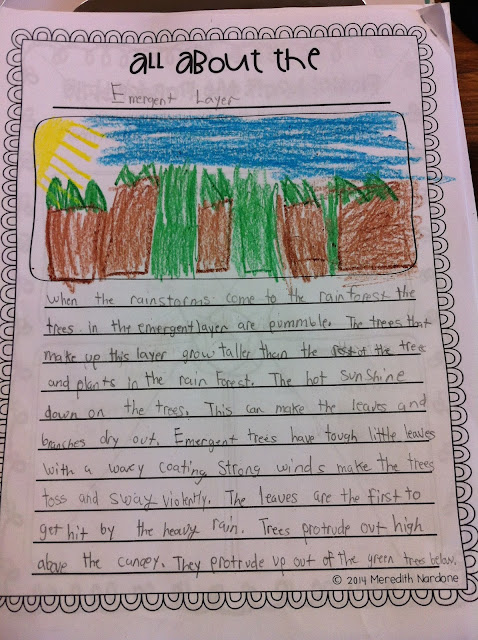 all about the
Emergent Layer
When the rainstorms come to the rain forest the
trees in the emergent layer are pummble. The trees that
make up this layer grow taller than the rest of the trees
and plants in the rain forest. The hot sunshine
down on the trees. This can make the leaves and
branches dry out. Emergent trees have tough little leaves
with a waxy coating. Strong winds make the trees
toss and sway violently. The leaves are the first to
get hit by the heavy rain. Trees protrude out high
above the canopy. They protrude up out of the green trees below.
© 2014 Meredith Nardone